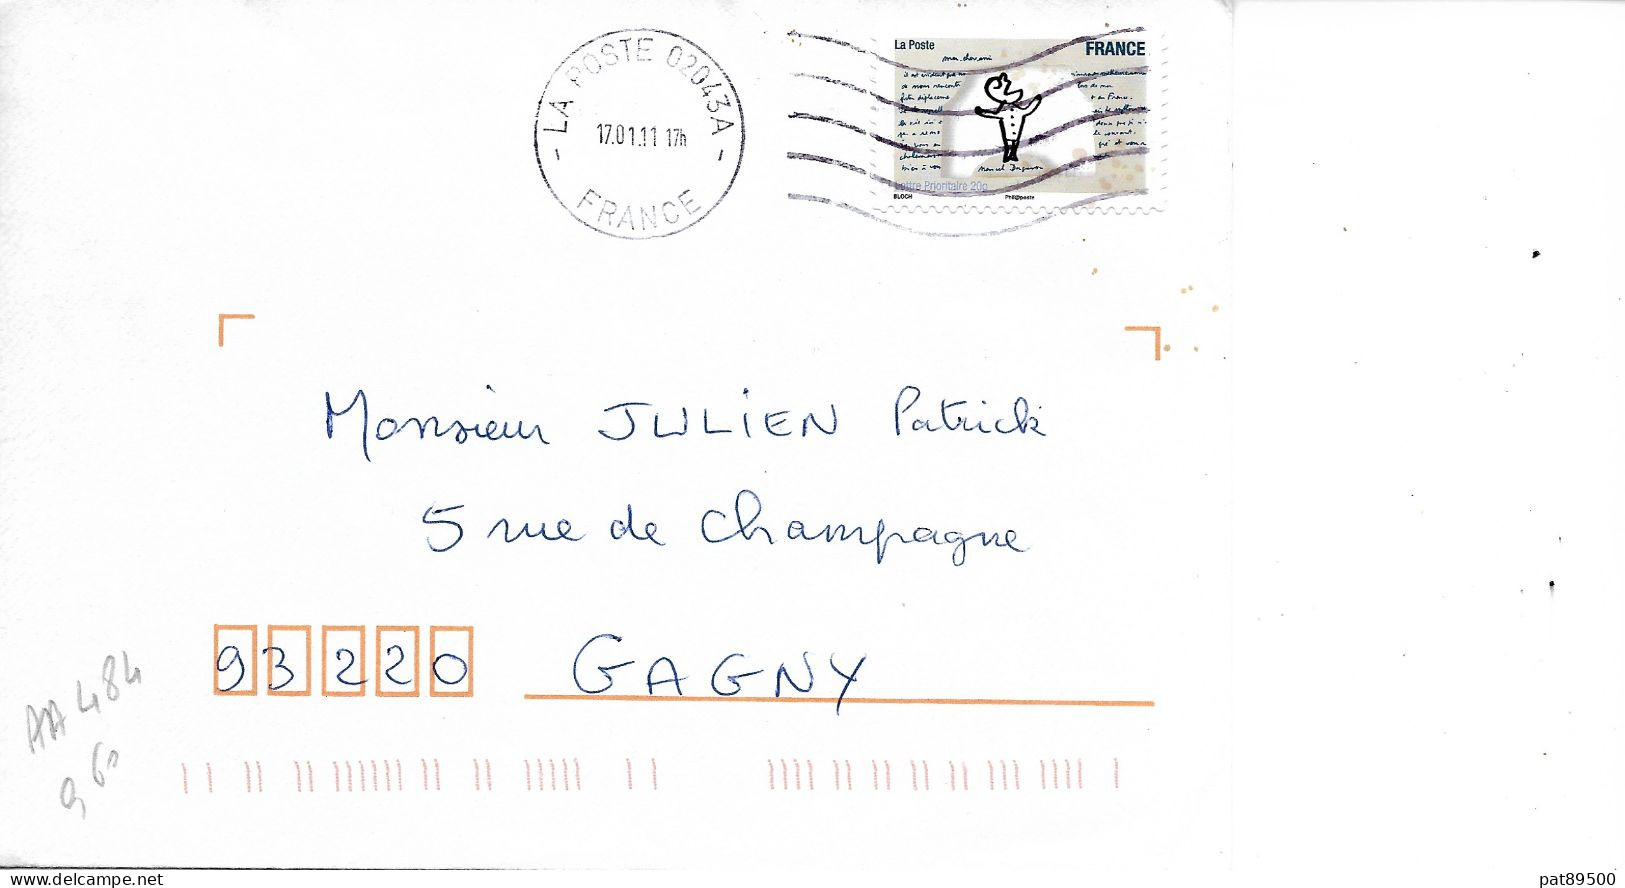 LA POSTE 02043A
17.01.11 17h
FRANCE
La Poste
FRANCE
mon cher ami
Lettre Prioritaire 20g
BLOCH
Phil@poste
Monsieur JULIEN Patrick
5 rue de Champagne
93220 GAGNY
AA 484
https://www.delcampe.net
pat89500